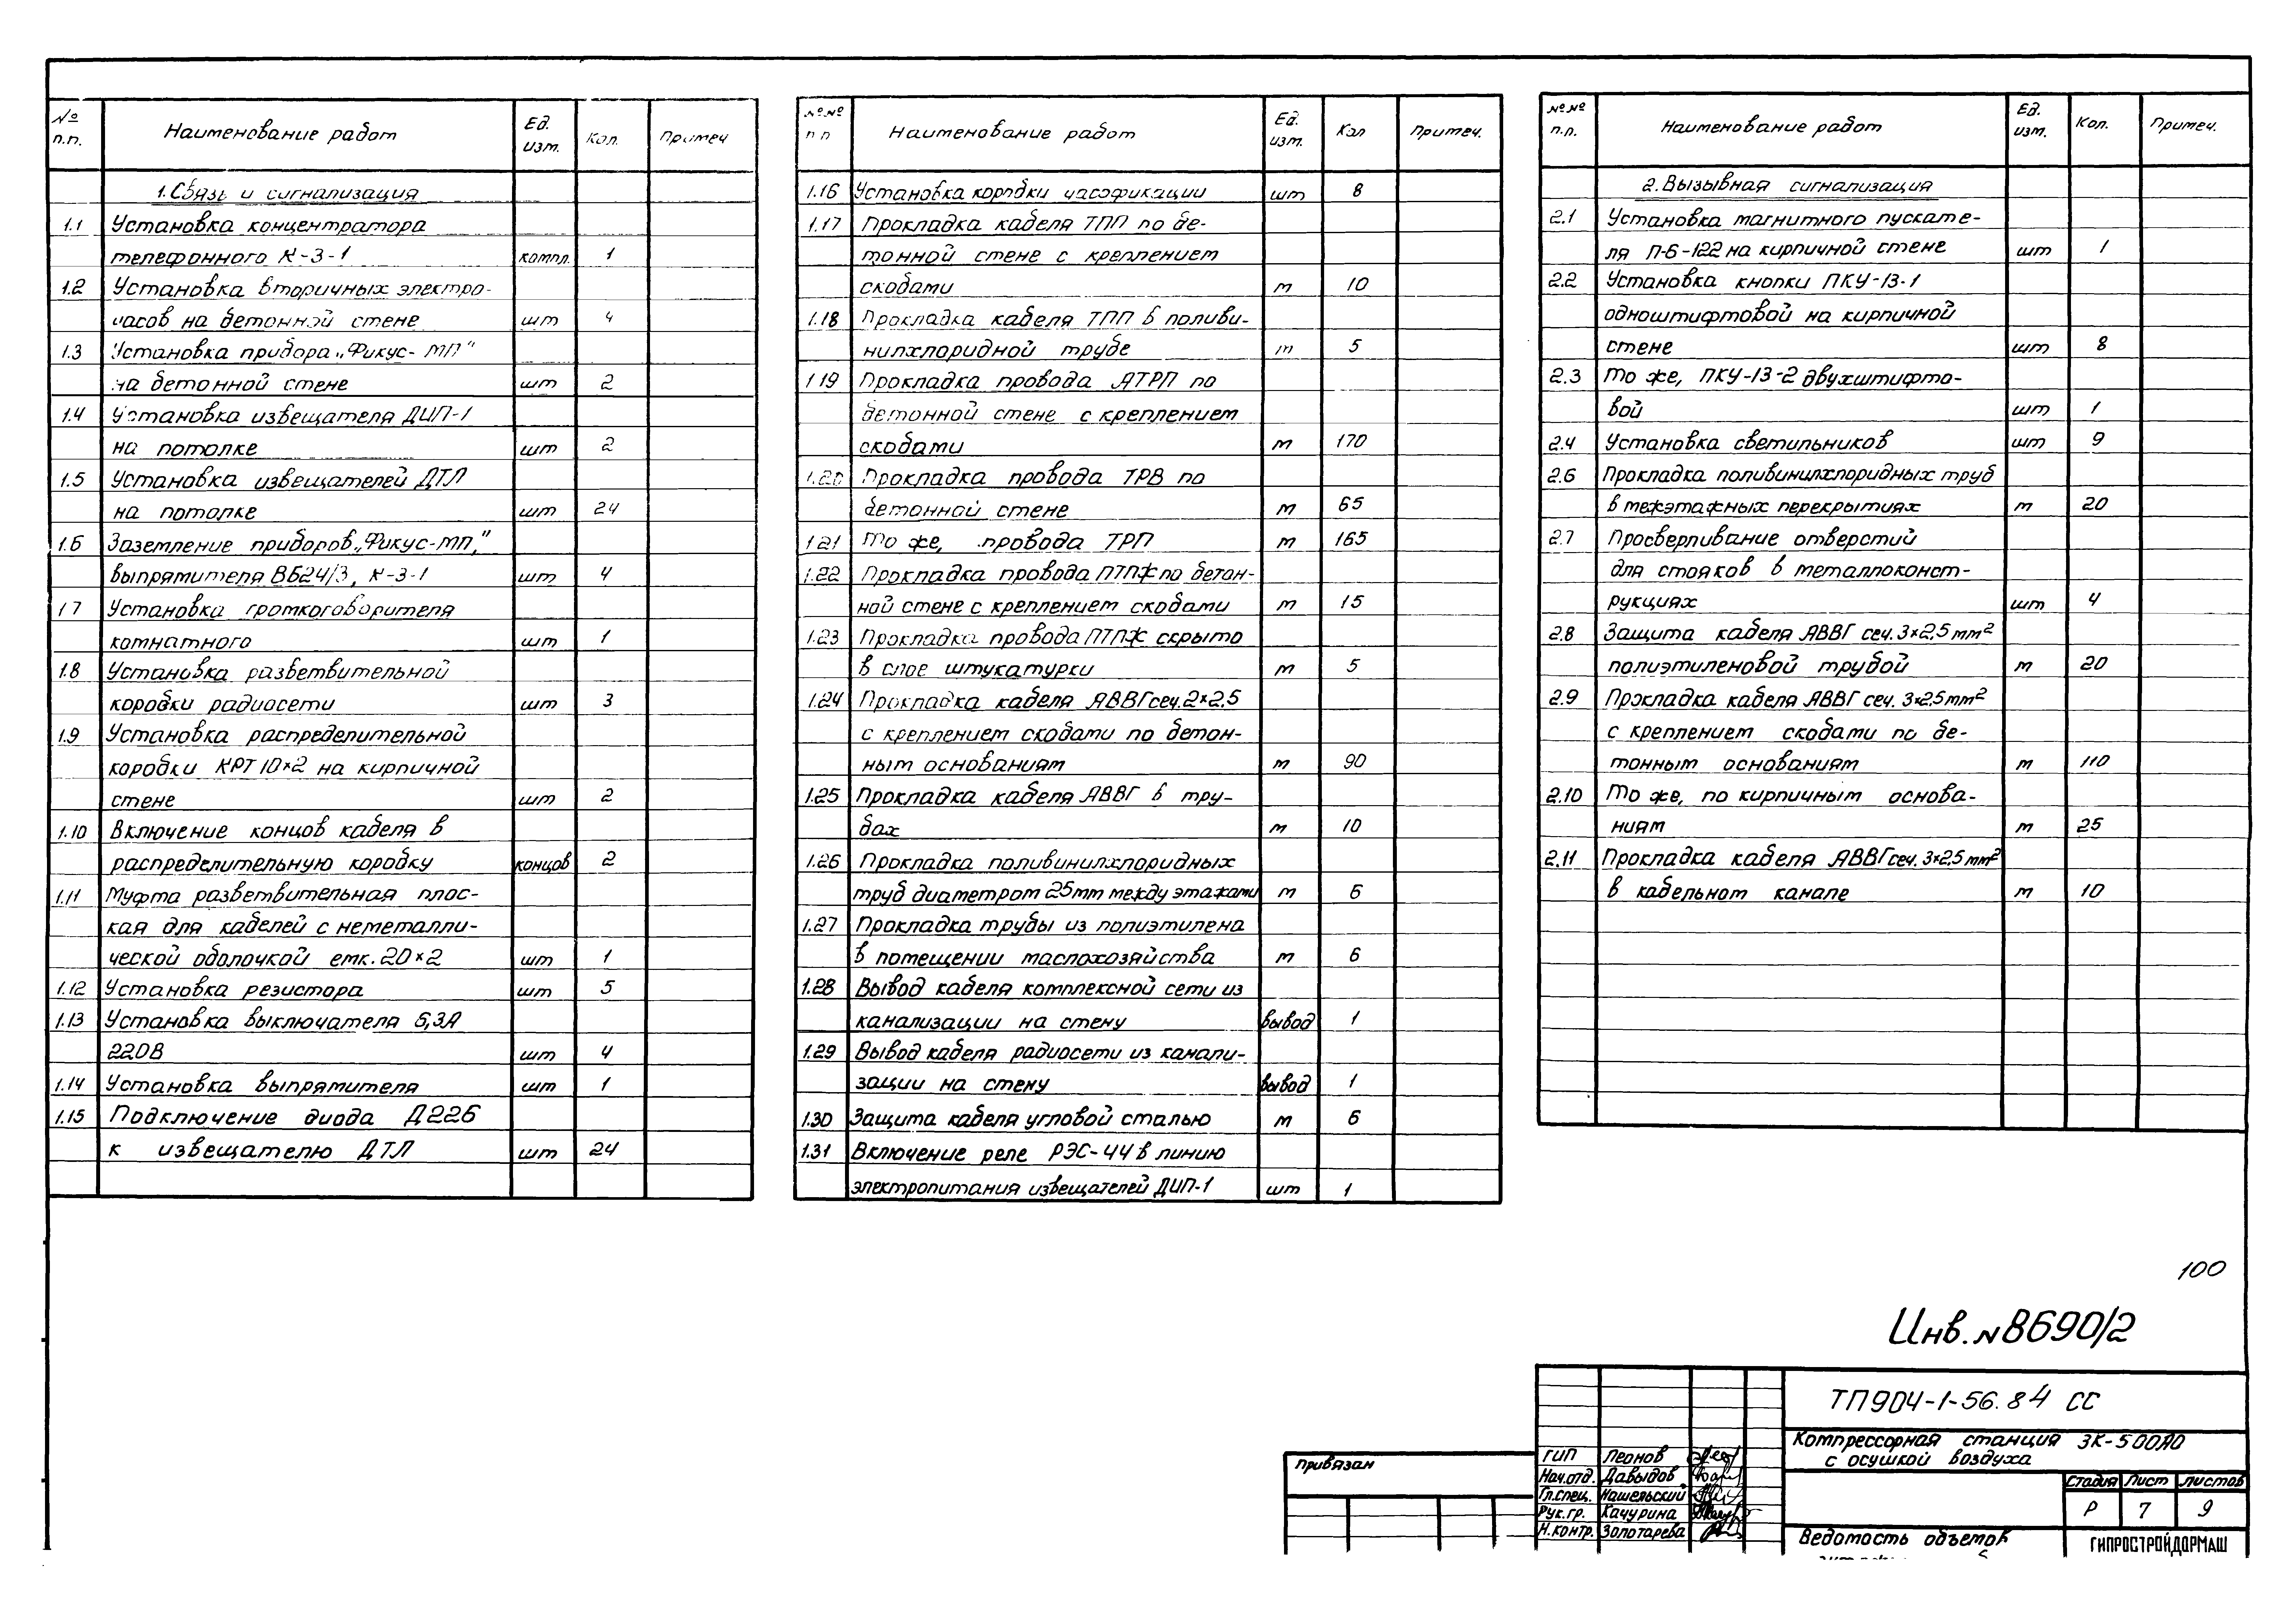 № п.п. Наименование работ Ед. изм. Кол. Примеч
1. Связь и сигнализация
1.1 Установка концентратора
телефонного К-3-1 компл. 1
1.2 Установка вторичных электро-
часов на бетонной стене шт 4
1.3 Установка прибора „Фикус-МП"
на бетонной стене шт 2
1.4 Установка извещателя ДИП-1
на потолке шт 2
1.5 Установка извещателей ДТЛ
на потолке шт 24
1.6 Заземление приборов „Фикус-МП,"
выпрямителя ВБ24/3, К-3-1 шт 4
1.7 Установка громкоговорителя
комнатного шт 1
1.8 Установка разветвительной
коробки радиосети шт 3
1.9 Установка распределительной
коробки КРТ 10×2 на кирпичной
стене шт 2
1.10 Включение концов кабеля в
распределительную коробку концов 2
1.11 Муфта разветвительная плос-
кая для кабелей с неметалли-
ческой оболочкой емк. 20×2 шт 1
1.12 Установка резистора шт 5
1.13 Установка выключателя 6,3А
220В шт 4
1.14 Установка выпрямителя шт 1
1.15 Подключение диода Д226
к извещателю ДТЛ шт 24
№№ п.п Наименование работ Ед. изм. Кол Примеч.
1.16 Установка коробки часофикации шт 8
1.17 Прокладка кабеля ТПП по бе-
тонной стене с креплением
скобами м 10
1.18 Прокладка кабеля ТПП в поливи-
нилхлоридной трубе м 5
1.19 Прокладка провода АТРП по
бетонной стене с креплением
скобами м 170
1.20 Прокладка провода ТРВ по
бетонной стене м 65
1.21 То же, провода ТРП м 165
1.22 Прокладка провода ПТПЖ по бетон-
ной стене с креплением скобами м 15
1.23 Прокладка провода ПТПЖ скрыто
в слое штукатурки м 5
1.24 Прокладка кабеля АВВГ сеч. 2×2,5
с креплением скобами по бетон-
ным основаниям м 90
1.25 Прокладка кабеля АВВГ в тру-
бах м 10
1.26 Прокладка поливинилхлоридных
труб диаметром 25мм между этажами м 6
1.27 Прокладка трубы из полиэтилена
в помещении маслохозяйства м 6
1.28 Вывод кабеля комплексной сети из
канализации на стену вывод 1
1.29 Вывод кабеля радиосети из канали-
зации на стену вывод 1
1.30 Защита кабеля угловой сталью м 6
1.31 Включение реле РЭС-44 в линию
электропитания извещателей ДИП-1 шт 1
№№ п.п. Наименование работ Ед. изм. Кол. Примеч.
2. Вызывная сигнализация
2.1 Установка магнитного пускате-
ля П-6-122 на кирпичной стене шт 1
2.2 Установка кнопки ПКУ-13-1
одноштифтовой на кирпичной
стене шт 8
2.3 То же, ПКУ-13-2 двухштифто-
вой шт 1
2.4 Установка светильников шт 9
2.6 Прокладка поливинилхлоридных труб
в межэтажных перекрытиях м 20
2.7 Просверливание отверстий
для стояков в металлоконст-
рукциях шт 4
2.8 Защита кабеля АВВГ сеч. 3×2,5 мм²
полиэтиленовой трубой м 20
2.9 Прокладка кабеля АВВГ сеч. 3×2,5 мм²
с креплением скобами по бе-
тонным основаниям м 110
2.10 То же, по кирпичным основа-
ниям м 25
2.11 Прокладка кабеля АВВГ сеч. 3×2,5 мм²
в кабельном канале м 10
100
Инв. № 8690/2
ТП904-1-56.84 СС
Компрессорная станция 3К-500АО
с осушкой воздуха
Привязан
ГИП Леонов
Нач.отд. Давыдов
Гл.спец. Нашельский
Рук.гр. Качурина
Н.контр. Золотарева
Стадия Лист Листов
Р 7 9
Ведомость объемов
ГИПРОСТРОЙДОРМАШ